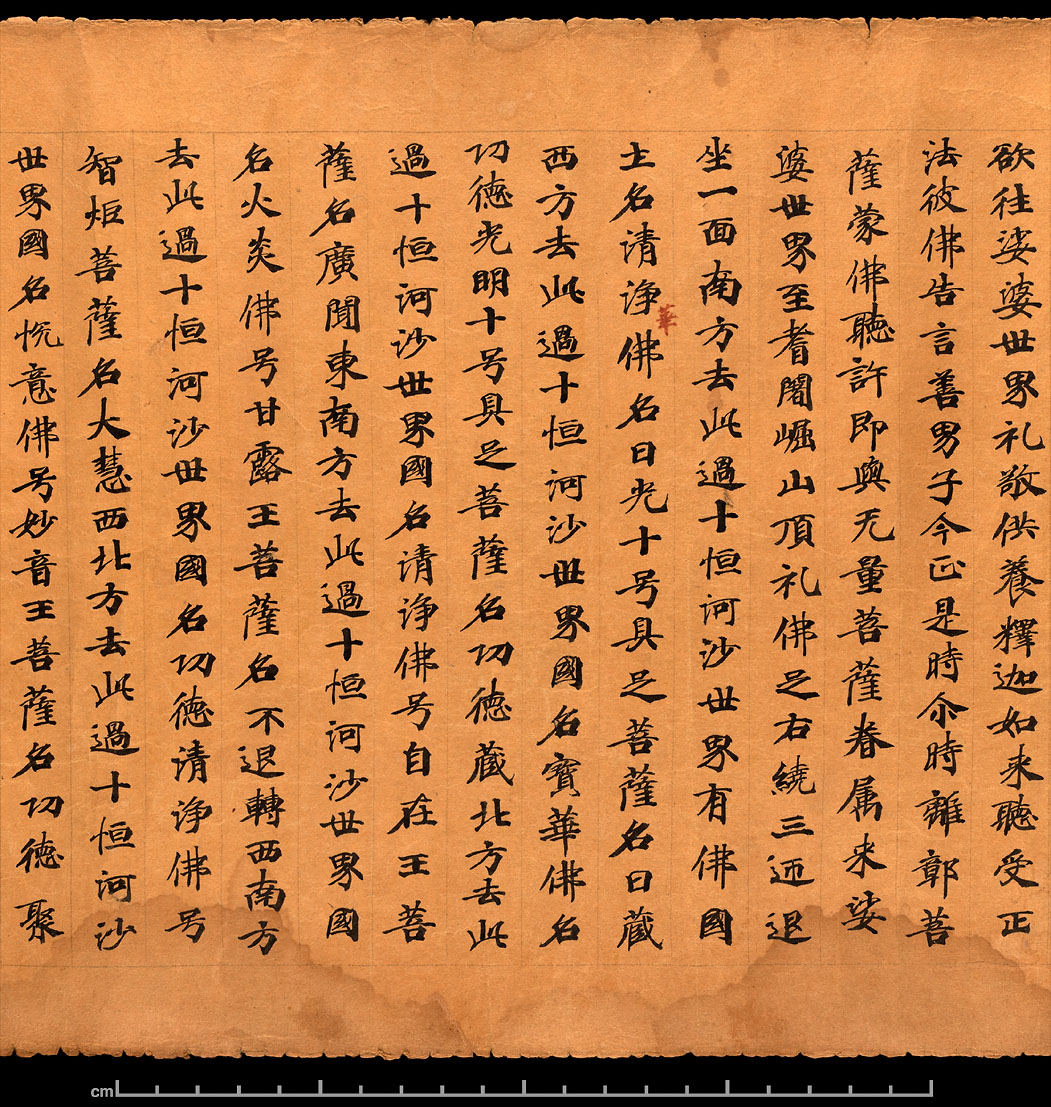 欲往娑婆世界礼敬供養釋迦如来聽受正
法彼佛告言善男子今正是時尒時離鄣菩
薩蒙佛聽許即與无量菩薩眷属来娑
婆世界至耆闍崛山頂礼佛足右繞三迊退
坐一面南方去此過十恒河沙世界有佛國
土名清淨華佛名日光十号具足菩薩名日藏
西方去此過十恒河沙世界國名寳華佛名
功德光明十号具足菩薩名功德藏北方去此
過十恒河沙世界國名清淨佛号自在王菩
薩名廣聞東南方去此過十恒河沙世界國
名火炎佛号甘露王菩薩名不退轉西南方
去此過十恒河沙世界國名功德清淨佛号
智炬菩薩名大慧西北方去此過十恒河沙
世界國名恱意佛号妙音王菩薩名功德聚
cm